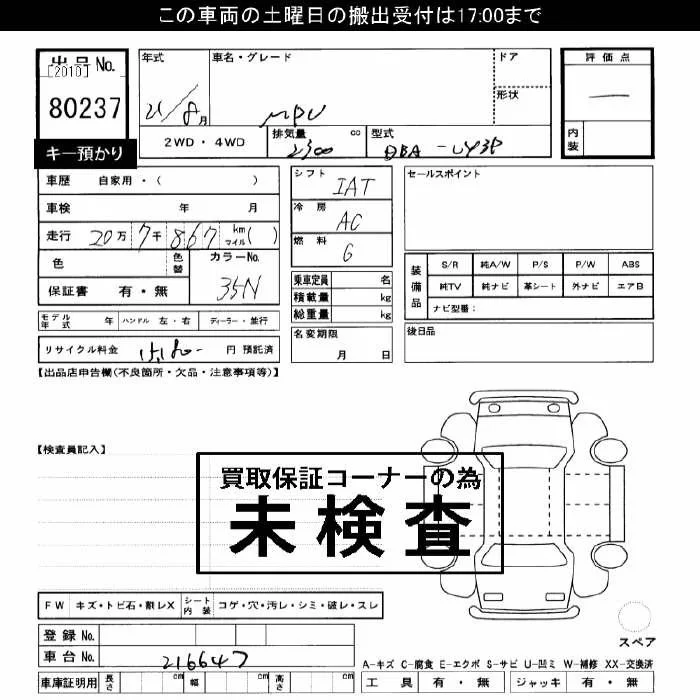 この車両の土曜日の搬出受付は17:00まで
出品 No.
[2010]
80237
キー預かり
年式
21/8月
車名・グレード
MPV
ドア
形状
2WD・4WD
排気量 cc
2300
型式
DBA-LY3P
評価点
―
内装
車歴 自家用・( )
車検 年 月
走行 20万7千867 km マイル( )
色 色替 カラーNo.
35N
保証書 有・無
モデル年式 年 ハンドル 左・右 ディーラー・並行
リサイクル料金 円 預託済
シフト IAT
冷房 AC
燃料 G
乗車定員 名
積載量 kg
総重量 kg
名変期限
月 日
セールスポイント
装備品
S/R 純A/W P/S P/W ABS
純TV 純ナビ 革シート 外ナビ エアB
ナビ型番:
後日品
【出品店申告欄(不良箇所・欠品・注意事項等)】
【検査員記入】
買取保証コーナーの為
未検査
FW キズ・トビ石・割レX シート内装 コゲ・穴・汚レ・シミ・破レ・スレ
登録 No.
車台 No. 216647
車庫証明用 長さ cm 幅 cm 高さ cm
スペア
A-キズ C-腐食 E-エクボ S-サビ U-凹ミ W-補修 XX-交換済
工具 有・無 ジャッキ 有・無